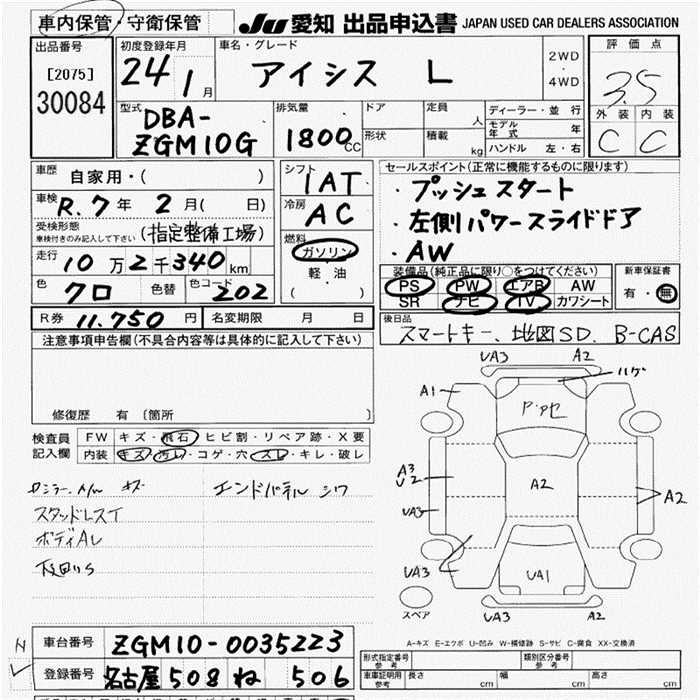 車内保管・守衛保管
JU 愛知 出品申込書 JAPAN USED CAR DEALERS ASSOCIATION
出品番号
[2075]
30084
初度登録年月
24 1月
車名・グレード
アイシス L
2WD
・
4WD
評価点
3.5
外装 内装
C C
型式
DBA-
ZGM10G
排気量
1800 CC
ドア
定員 人
形状
積載 kg
ディーラー・並行
モデル年式 年
ハンドル 左・右
車歴
自家用・( )
車検
R.7年 2月( 日)
受検形態
車検付きのみ記入して下さい
(指定整備工場)
走行
10万2千340km
色
クロ
色替
色コード
202
シフト
IAT
冷房
AC
燃料
ガソリン
・
軽・油
( )
セールスポイント(正常に機能するものに限ります)
・プッシュスタート
・左側パワースライドドア
・AW
装備品(純正品に限り○をつけてください)
PS PW エアB AW
SR ナビ TV カワシート
新車保証書
有・無
R券 11.750円
名変期限 月 日
後日品
スマートキー、地図SD、B-CAS
注意事項申告欄(不具合内容等は具体的に記入して下さい)
修復歴 有 〔箇所 〕
検査員
記入欄
FW キズ・飛石・ヒビ割・リペア跡・X要
内装 キズ・汚レ・コゲ・穴・スレ・キレ・破レ
キズ
エンドパネル シワ
スタッドレスイ
ボディAレ
下回りS
UA3 A2
ハゲ
A1
P・アセ
A3
U2
A2
UA3
A2
UA3
UA1
スペア
UA3 A2
A-キズ E-エクボ U-凹み W-補修跡 S-サビ C-腐食 XX-交換済
N
車台番号
ZGM10-0035223
登録番号
名古屋 508 ね 506
形式指定番号
参考
類別区分番号
参考
車庫証明用
参考
長さ cm
幅 cm
高さ cm